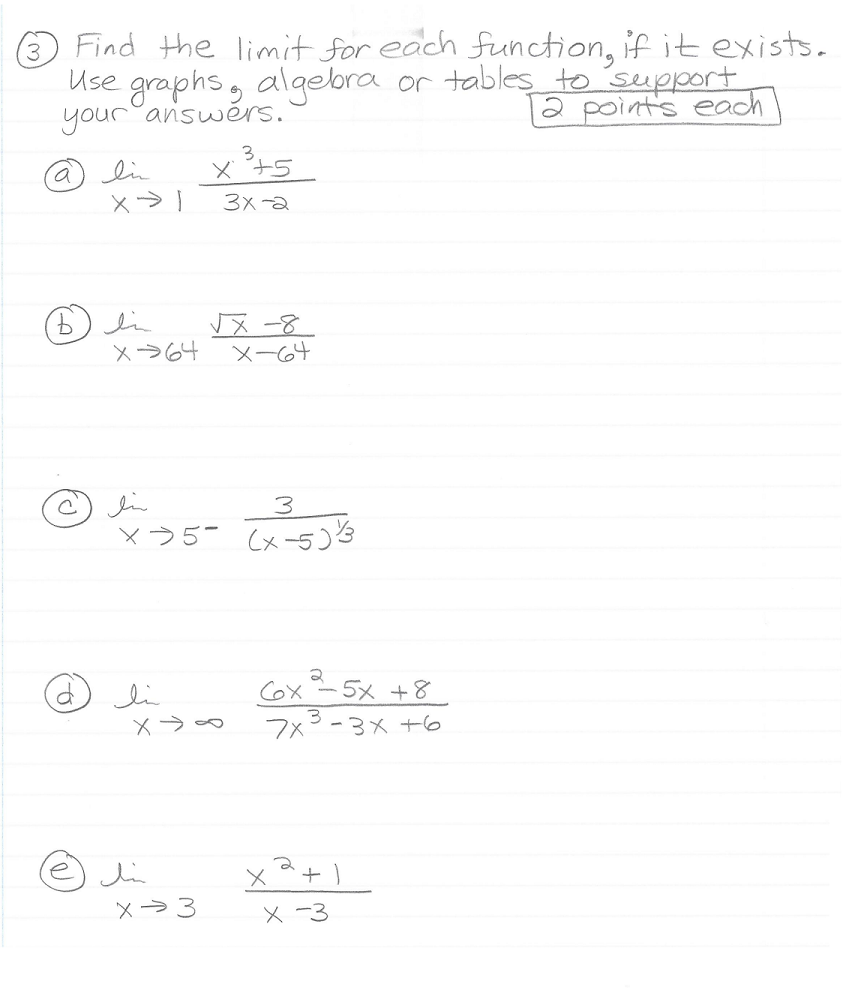 ③ Find the limit for each function, if it exists.
Use graphs, algebra or tables to support
your answers. 2 points each
ⓐ lim x³+5
x→1 3x-2
ⓑ lim √x -8
x→64 x-64
ⓒ lim 3
x→5⁻ (x-5)^1/3
ⓓ lim 6x²-5x+8
x→∞ 7x³-3x+6
ⓔ lim x²+1
x→3 x-3